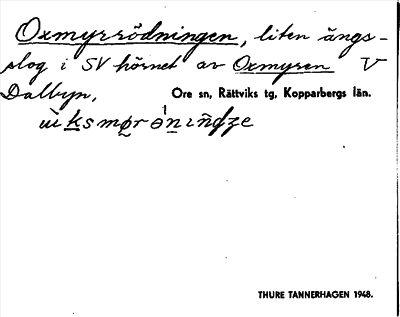 Oxmyrrödningen, liten ängs-
slog i SV hörnet av Oxmyren V
Dalbyn, Ore sn, Rättviks tg, Kopparbergs län.
THURE TANNERHAGEN 1948.